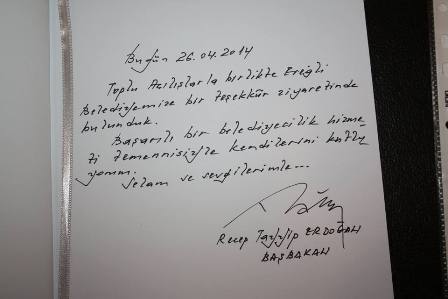 Bugün 26.04.2014
Toplu Açılışlarla birlikte Ereğli
Belediyemize bir teşekkür ziyaretinde
bulunduk.
Başarılı bir belediyecilik hizme
ti temennisiyle kendilerini kutlu
yorum.
Selam ve sevgilerimle...
Recep Tayyip ERDOĞAN
BAŞBAKAN